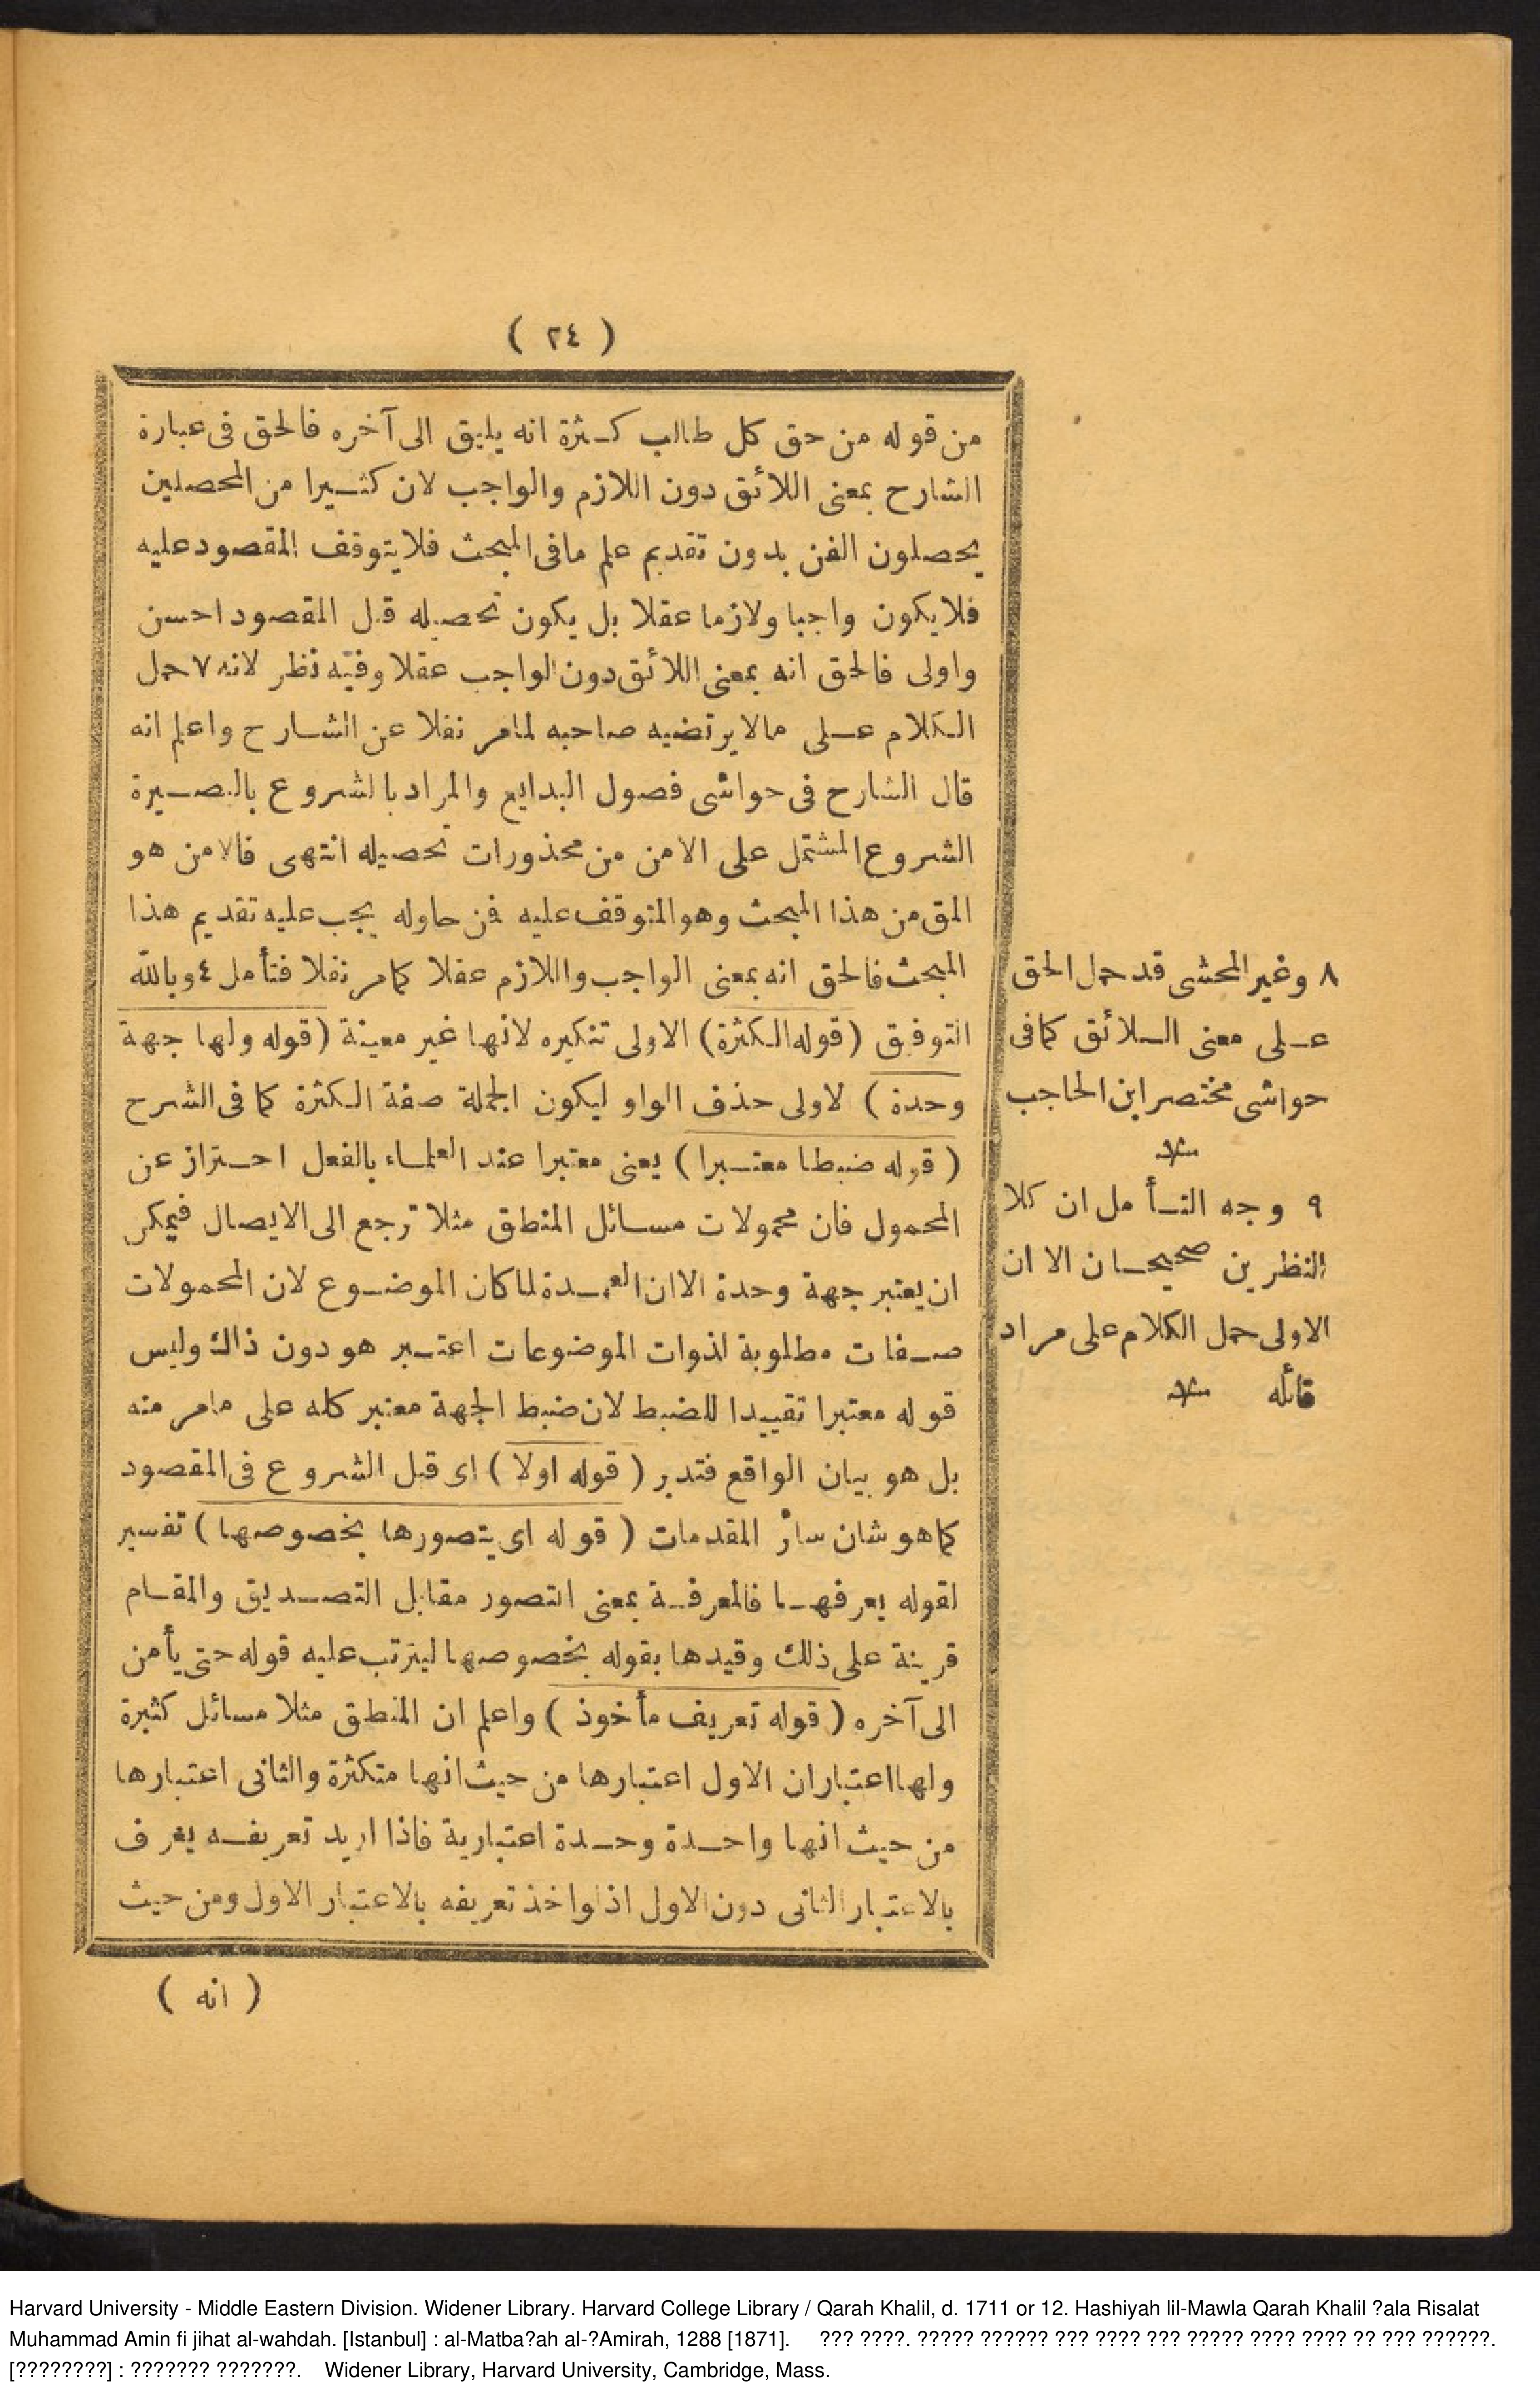 ( ٢٤ )
من قوله من حق كل طالب كثرة انه يليق الى آخره فالحق فى عبارة
الشارح بمعنى اللائق دون اللازم والواجب لان كثيرا من المحصلين
يحصلون الفن بدون تقديم علم مافى المبحث فلا يتوقف المقصود عليه
فلا يكون واجبا ولازما عقلا بل يكون تحصيله قبل المقصود احسن
واولى فالحق انه بمعنى اللائق دون الواجب عقلا وفيه نظر لانه ٧ حمل
الكلام على مالا يرتضيه صاحبه لمامر نقلا عن الشارح واعلم انه
قال الشارح فى حواشى فصول البدايع والمراد بالشروع بالبصيرة
الشروع المشتمل على الامن من محذورات تحصيله انتهى فالامن هو
المق من هذا المبحث وهو المتوقف عليه فن حاوله يجب عليه تقديم هذا
المبحث فالحق انه بمعنى الواجب واللازم عقلا كمامر نقلا فتأمل ٤ وبالله
التوفيق ( قوله الكثرة ) الاولى تنكيره لانها غير معينة ( قوله ولها جهة
وحدة ) لاولى حذف الواو ليكون الجملة صفة الكثرة كما فى الشرح
( قوله ضبطا معتبرا ) يعنى معتبرا عند العلماء بالفعل احتراز عن
المحمول فان محمولات مسائل المنطق مثلا ترجع الى الايصال فيمكن
ان يعتبر جهة وحدة الا ان العمدة لما كان الموضوع لان المحمولات
صفات مطلوبة لذوات الموضوعات اعتبر هو دون ذاك وليس
قوله معتبرا تقييدا للضبط لان ضبط الجهة معتبر كله على مامر منه
بل هو بيان الواقع فتدبر ( قوله اولا ) اى قبل الشروع فى المقصود
كما هو شان سائر المقدمات ( قوله اى يتصورها بخصوصها ) تفسير
لقوله يعرفها فالمعرفة بمعنى التصور مقابل التصديق والمقام
قرينة على ذلك وقيدها بقوله بخصوصها ليترتب عليه قوله حتى يأمن
الى آخره ( قوله تعريف مأخوذ ) واعلم ان المنطق مثلا مسائل كثيرة
ولها اعتباران الاول اعتبارها من حيث انها متكثرة والثانى اعتبارها
من حيث انها واحدة وحدة اعتبارية فاذا اريد تعريفه يعرف
بالاعتبار الثانى دون الاول اذ لو اخذ تعريفه بالاعتبار الاول ومن حيث
( انه )
٨ وغير المحشى قد حمل الحق
على معنى اللائق كمافى
حواشى مختصر ابن الحاجب
٩ وجه التأمل ان كلا
النظرين صحيحان الا ان
الاولى حمل الكلام على مراد
قائله
Harvard University - Middle Eastern Division. Widener Library. Harvard College Library / Qarah Khalil, d. 1711 or 12. Hashiyah lil-Mawla Qarah Khalil ?ala Risalat
Muhammad Amin fi jihat al-wahdah. [Istanbul] : al-Matba?ah al-?Amirah, 1288 [1871]. ??? ????. ????? ?????? ??? ???? ??? ????? ???? ???? ?? ??? ??????.
[????????] : ??????? ???????. Widener Library, Harvard University, Cambridge, Mass.